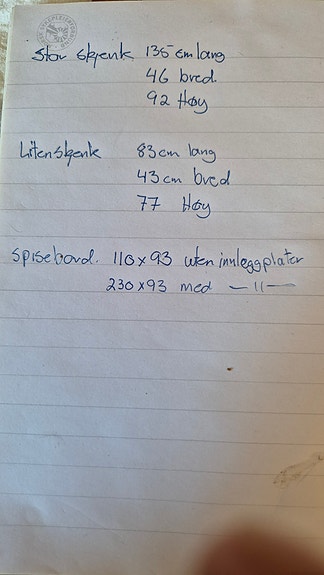 Stor skjenk 135 cm lang
46 bred.
92 Høy
Liten skjenk 83 cm lang
43 cm bred
77 Høy
Spisebord. 110 x 93 uten innleggplater
230 x 93 med — 11 —